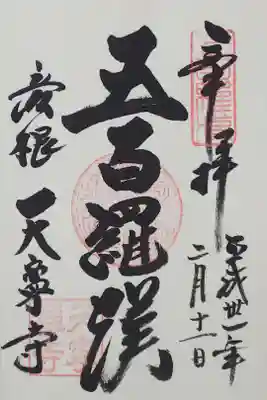 奉拝
平成卅一年
二月十一日
五百羅漢
彦根
天寧寺